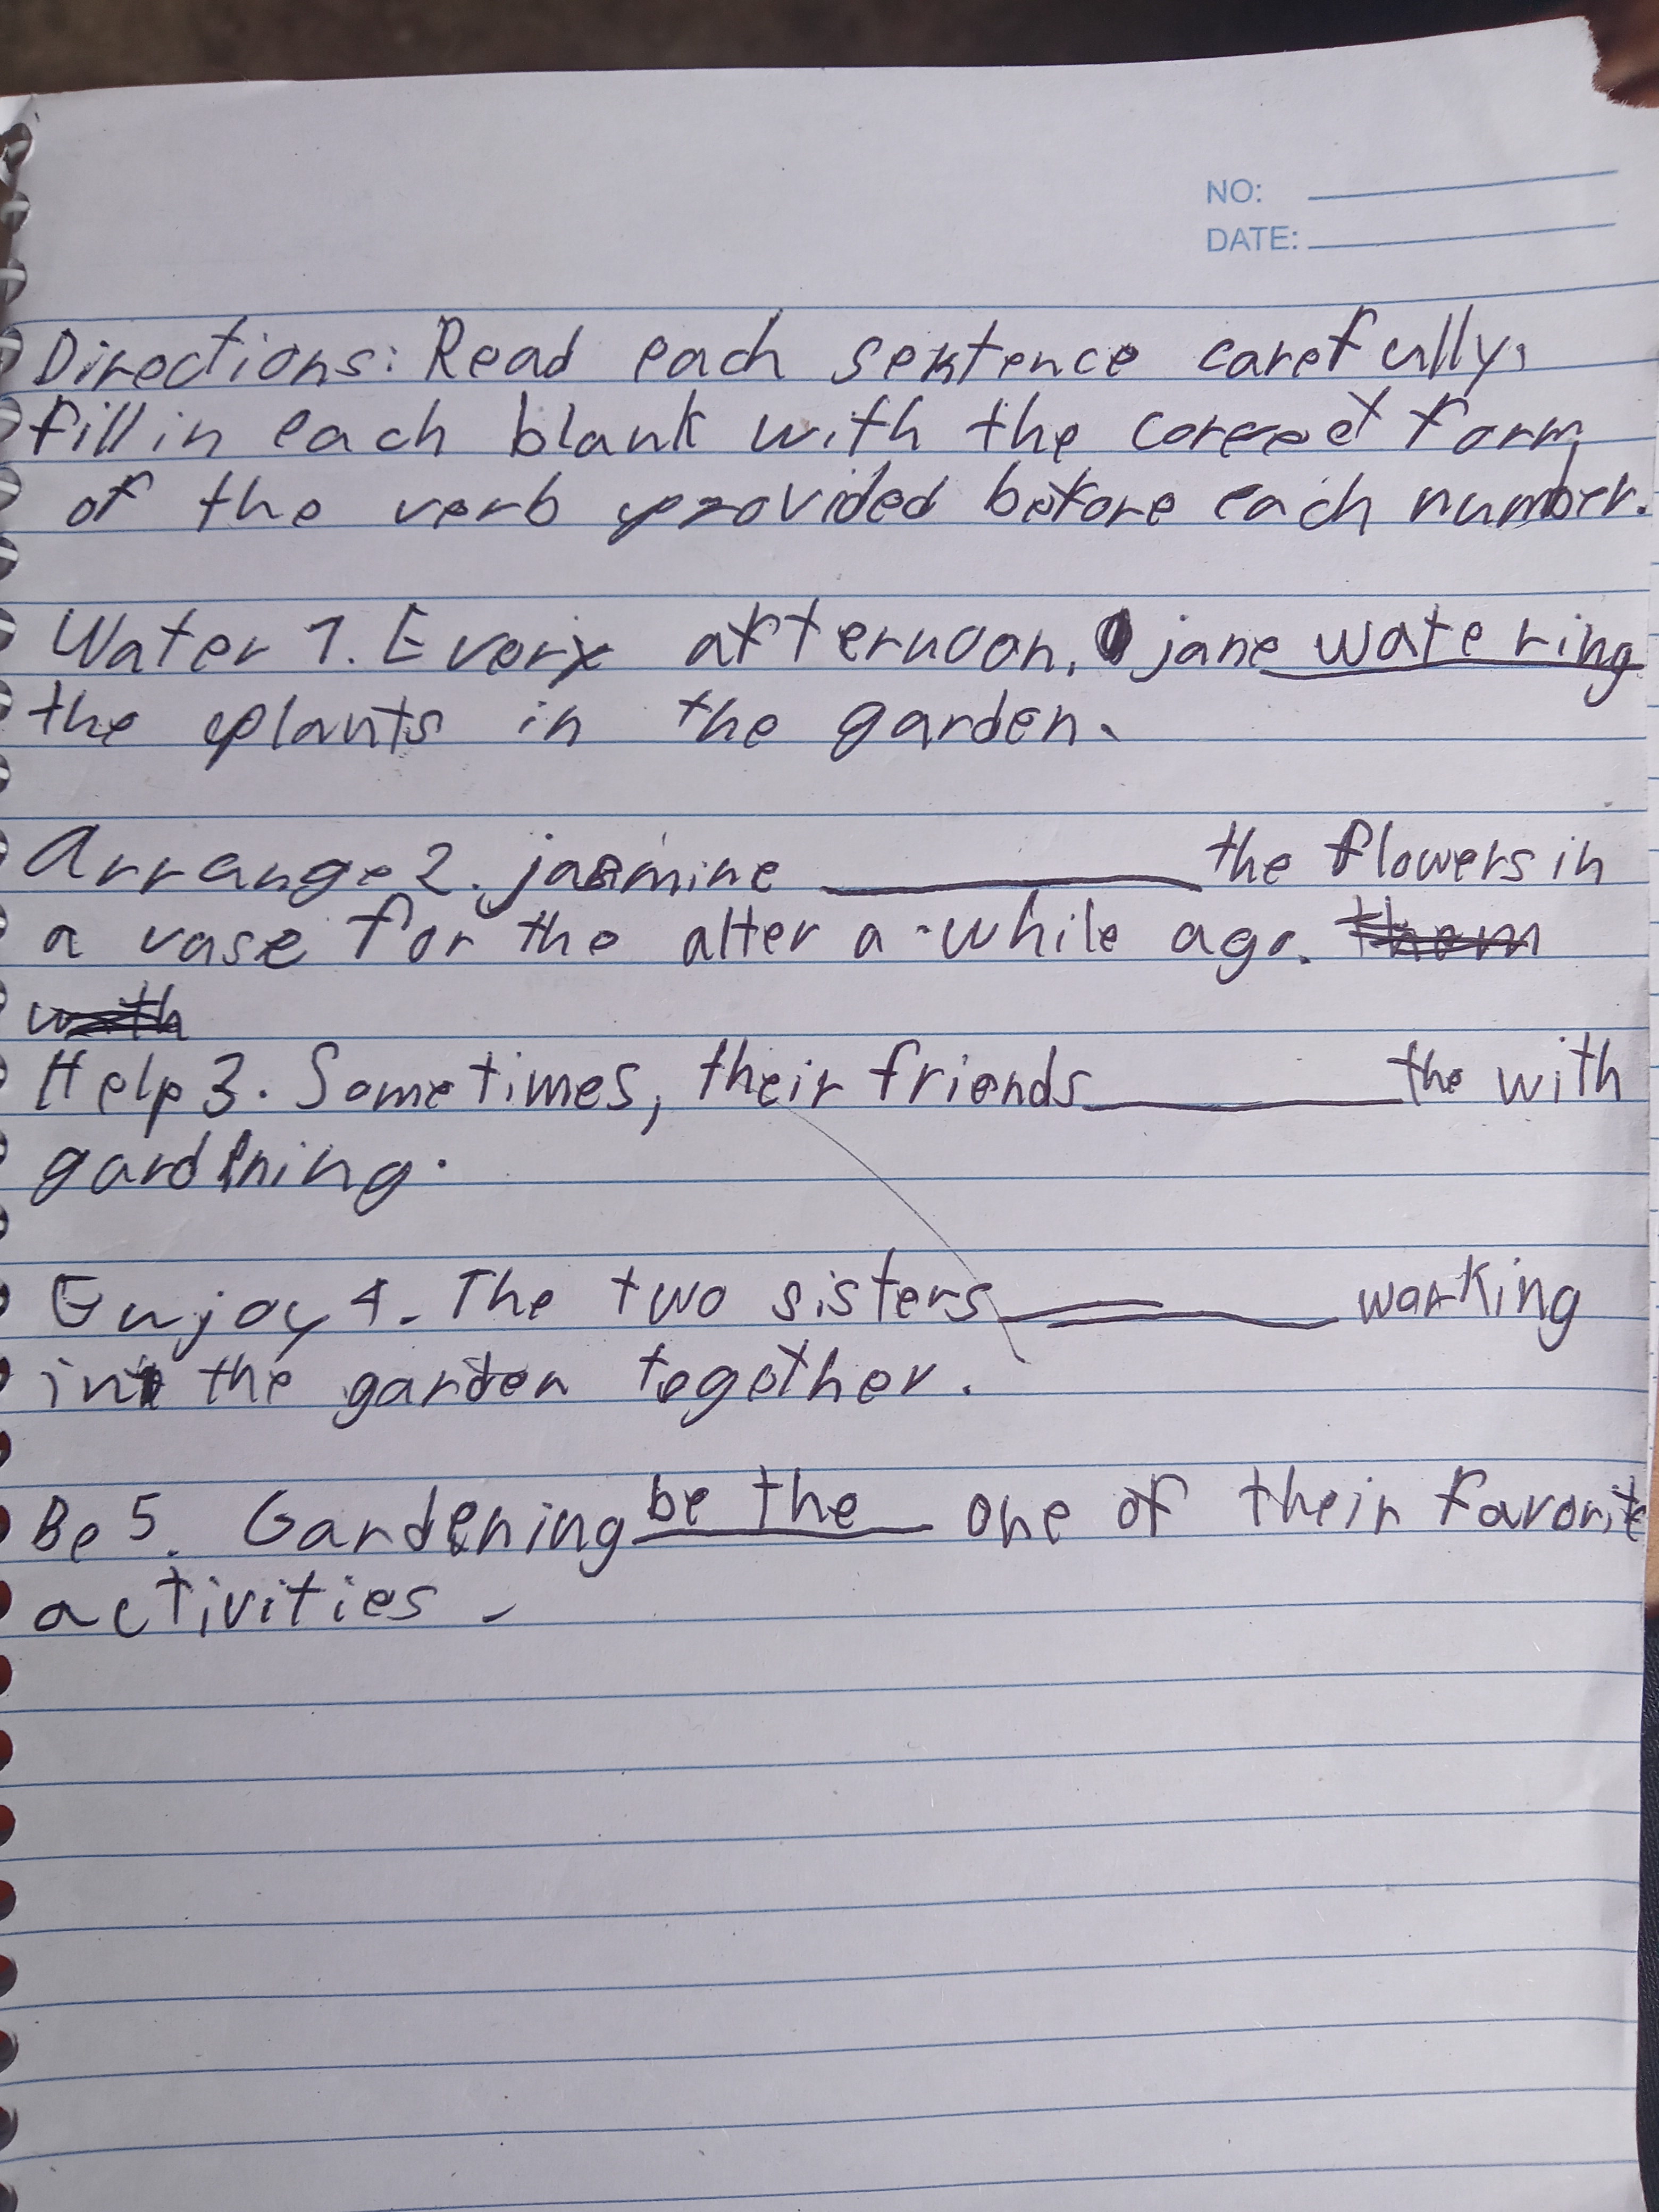 NO:
DATE:
Directions: Read each sentence carefully.
fill in each blank with the correct form
of the verb provided before each number.
Water 1. Every afternoon, jane watering
the plants in the garden.
Arrange 2. jasmine ________ the flowers in
a vase for the alter a-while ago. them
with
Help 3. Sometimes, their friends ________ the with
gardening.
Enjoy 4. The two sisters ________ working
in the garden together.
Be 5. Gardening be the one of their favorite
activities.